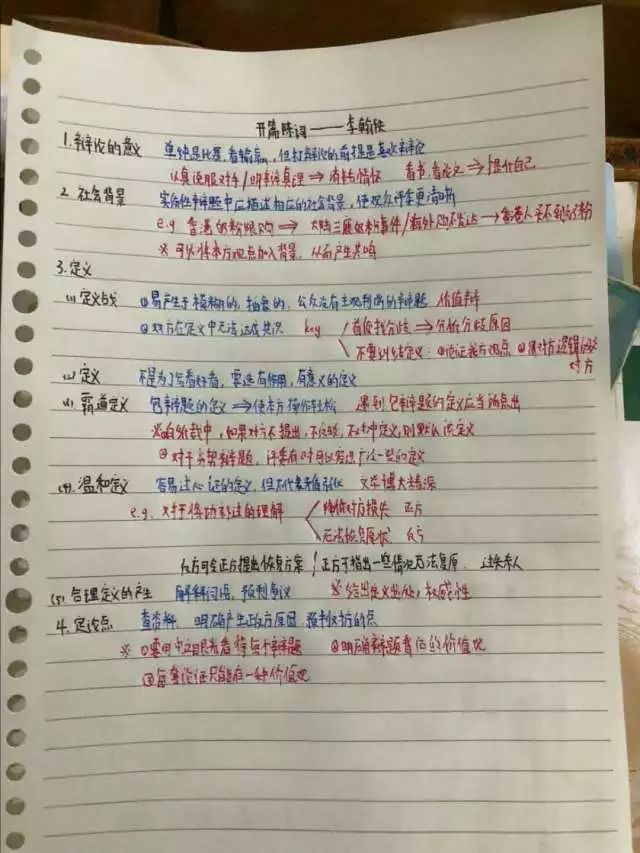 开篇陈词——李翰
1.辩论的意义 单纯是比赛,看输赢,但打辩论的前提是喜欢辩论
认真说服对手/明辨真理⇒ 情怀 看书,看论文⇒提升自己
2.社会背景 实际性辩题中应描述相应的社会背景,使观众评委更清晰
e.g 香港奶粉限购⇒大陆三鹿奶粉事件/海外购不发达→香港人买不到奶粉
※可以将本方观点加入背景,从而产生共鸣
3.定义
(1)定义战 ①易产生于模糊的,抽象的,公众没有主观判断的辩题 价值辩
②双方在定义中无法达成共识 key 首先找分歧⇒分析分歧原因
不要纠结定义:①论证我方观点 ②用对方逻辑 对方
(2)定义 不是为了写着好看,要造有作用,有意义的定义
(3)霸道定义 包辩题的定义⇒使本方操作轻松 遇到包辩题的定义应当
※ 中,如果对方不提出,不 ,不 定义,则默认该定义
②对于劣势辩题,评委有时可以 一些的定义
(4)温和定义 容易过心证的定义,但不代表 文华博大精深
e.g.对于将功补过的理解 降低对方损失 正方
无法恢复原状 反方
反方可令正方提出恢复方案/正方可指出一些情况无法复原 过失杀人
(5)合理定义的产生 解释词语,预判争议 ※给出定义出处,权威性
4.定论点 查资料 明确产生正反方原因 预判对方的点
※①要用中立目光看待每个辩题 ②明确辩题背后的价值观
③每套论证只能有一种价值观